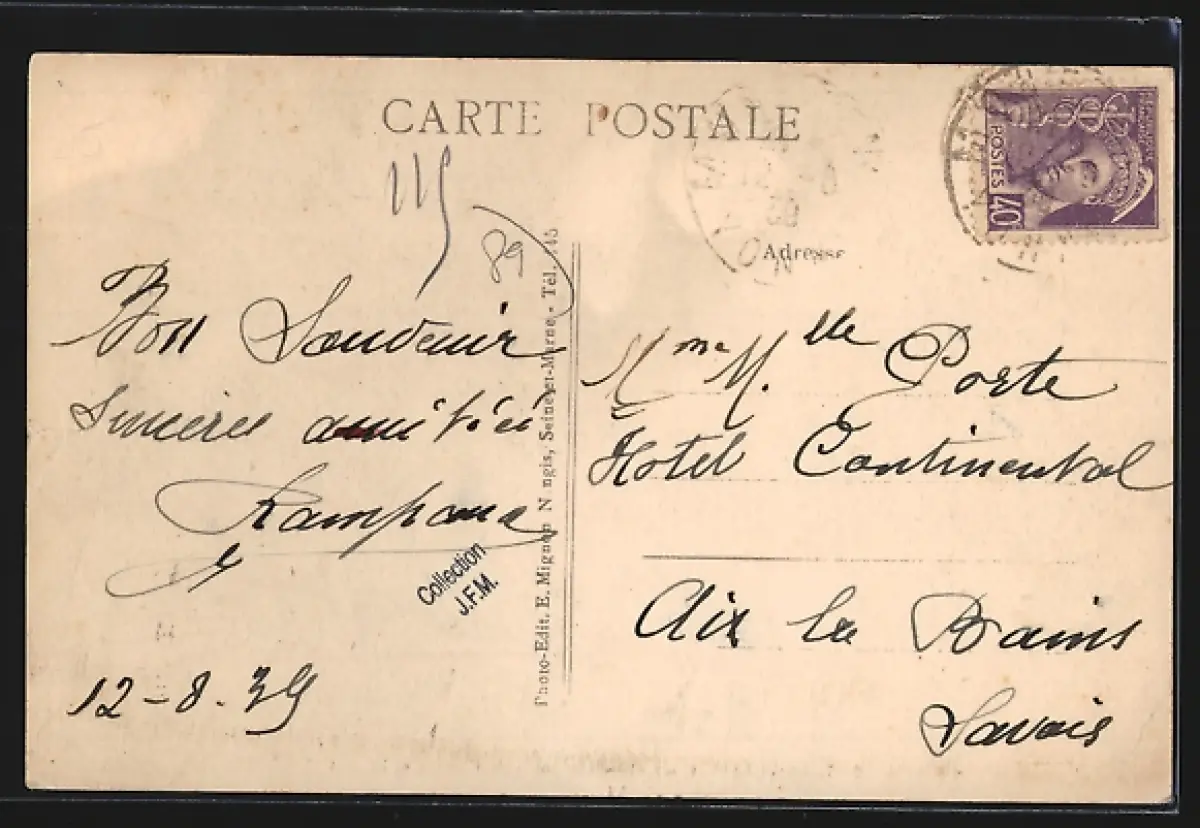 CARTE POSTALE
Adresse
POSTES
40
89
Bon Souvenir
Sincères amitiés
12-8.39
Collection
J.F.M.
Photo-Edit. E. Mignon Nangis, Seine-et-Marne. - Tél. 145
Mme Mlle Porte
Hotel Continental
Aix les Bains
Savoie